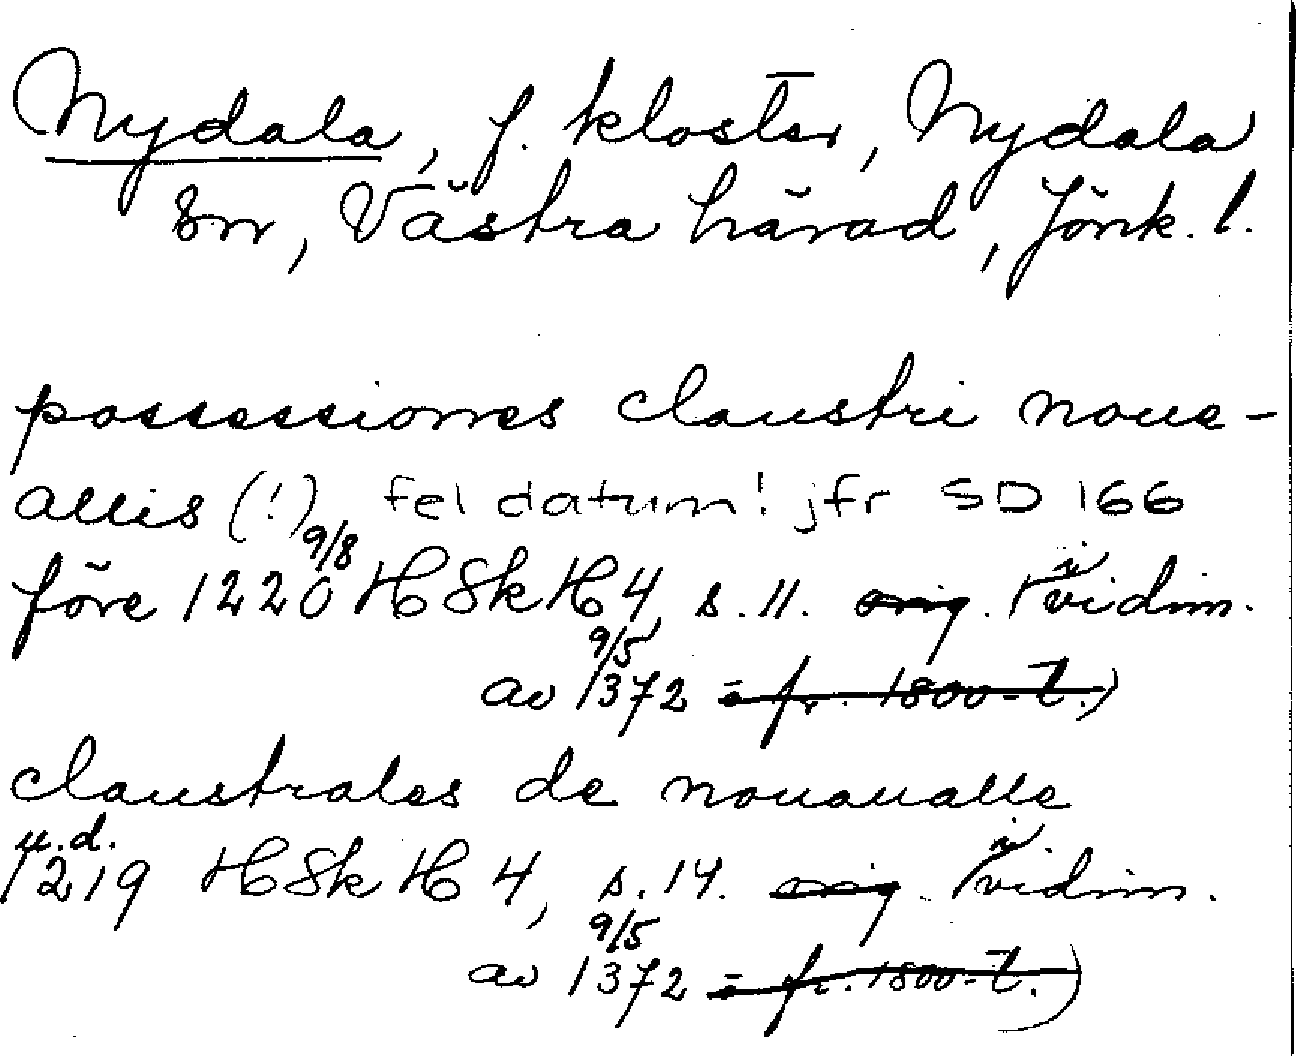 Nydala, f. kloster, Nydala
sn, Västra härad, Jönk. l.
possessiones claustri noue-
allis (!) Fel datum! jfr SD 166
9/8
före 1220 HSkH 4, s. 11. orig. (i vidim.
9/5
av 1372 = fr. 1800-t.)
claustrales de nouaualle
u.d.
1219 HSkH 4, s. 14. orig. (i vidim.
9/5
av 1372 = fr. 1800-t.)